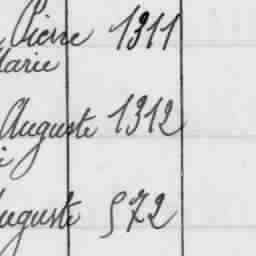 Pierre 1311
Marie
Auguste 1312
Auguste 572